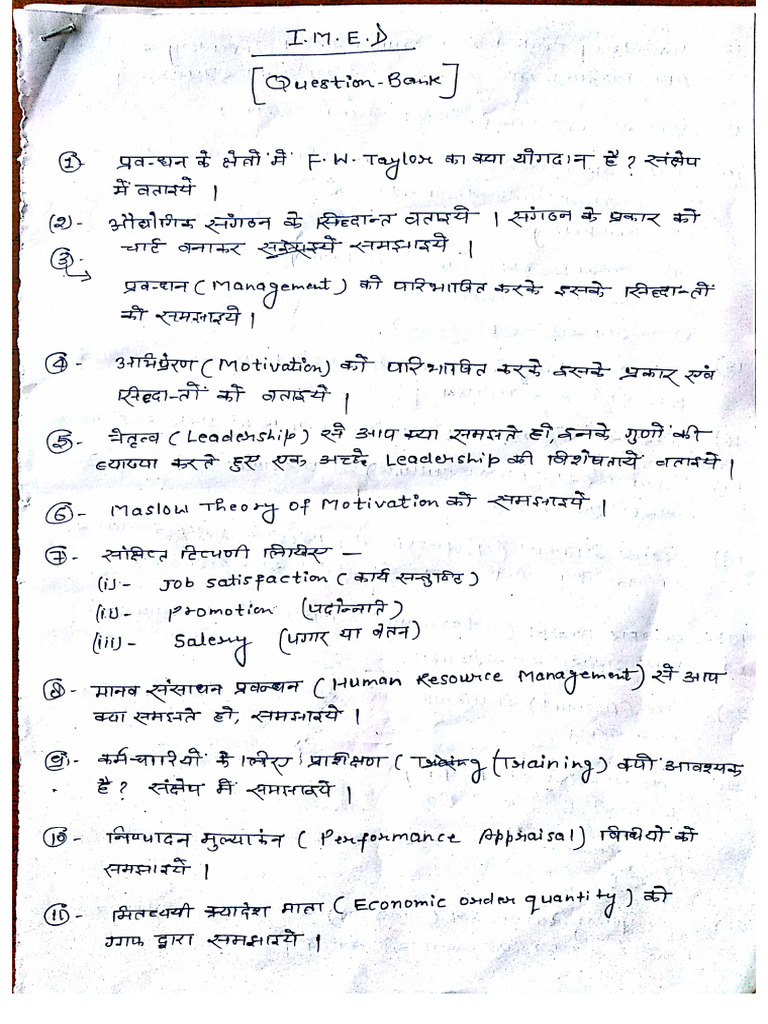 I.M.E.D
[Question-Bank]
①- प्रबन्धन के क्षेत्रों में F.W. Taylor का क्या योगदान है? संक्षेप
में बताइये।
(2)- औद्योगिक संगठन के सिद्धान्त बताइये। संगठन के प्रकार को
चार्ट बनाकर समझाइये।
③-
प्रबन्धन (Management) को परिभाषित करके इसके सिद्धान्तों
को समझाइये।
④- अभिप्रेरण (Motivation) को परिभाषित करके इसके प्रकार एवं
सिद्धान्तों को बताइये।
⑤- नेतृत्व (Leadership) से आप क्या समझते हो, इनके गुणों की
व्याख्या करते हुस एक अच्छे Leadership की विशेषतायें बताइये।
⑥- Maslow Theory of Motivation को समझाइये।
⑦- संक्षिप्त टिप्पणी लिखिस —
(i)- Job satisfaction (कार्य सन्तुष्टि)
(ii)- Promotion (पदोन्नति)
(iii)- Salery (पगार या वेतन)
⑧- मानव संसाधन प्रबन्धन (Human Resource Management) से आप
क्या समझते हो, समझाइये।
⑨- कर्मचारियों के लिस प्रशिक्षण (Training) क्यों आवश्यक
है? संक्षेप में समझाइये।
⑩- निष्पादन मुल्यांकन (Performance Appraisal) विधियों को
समझाइये।
⑪- मितव्ययी क्र्यादेश मात्रा (Economic order quantity) को
ग्राफ द्वारा समझाइये।